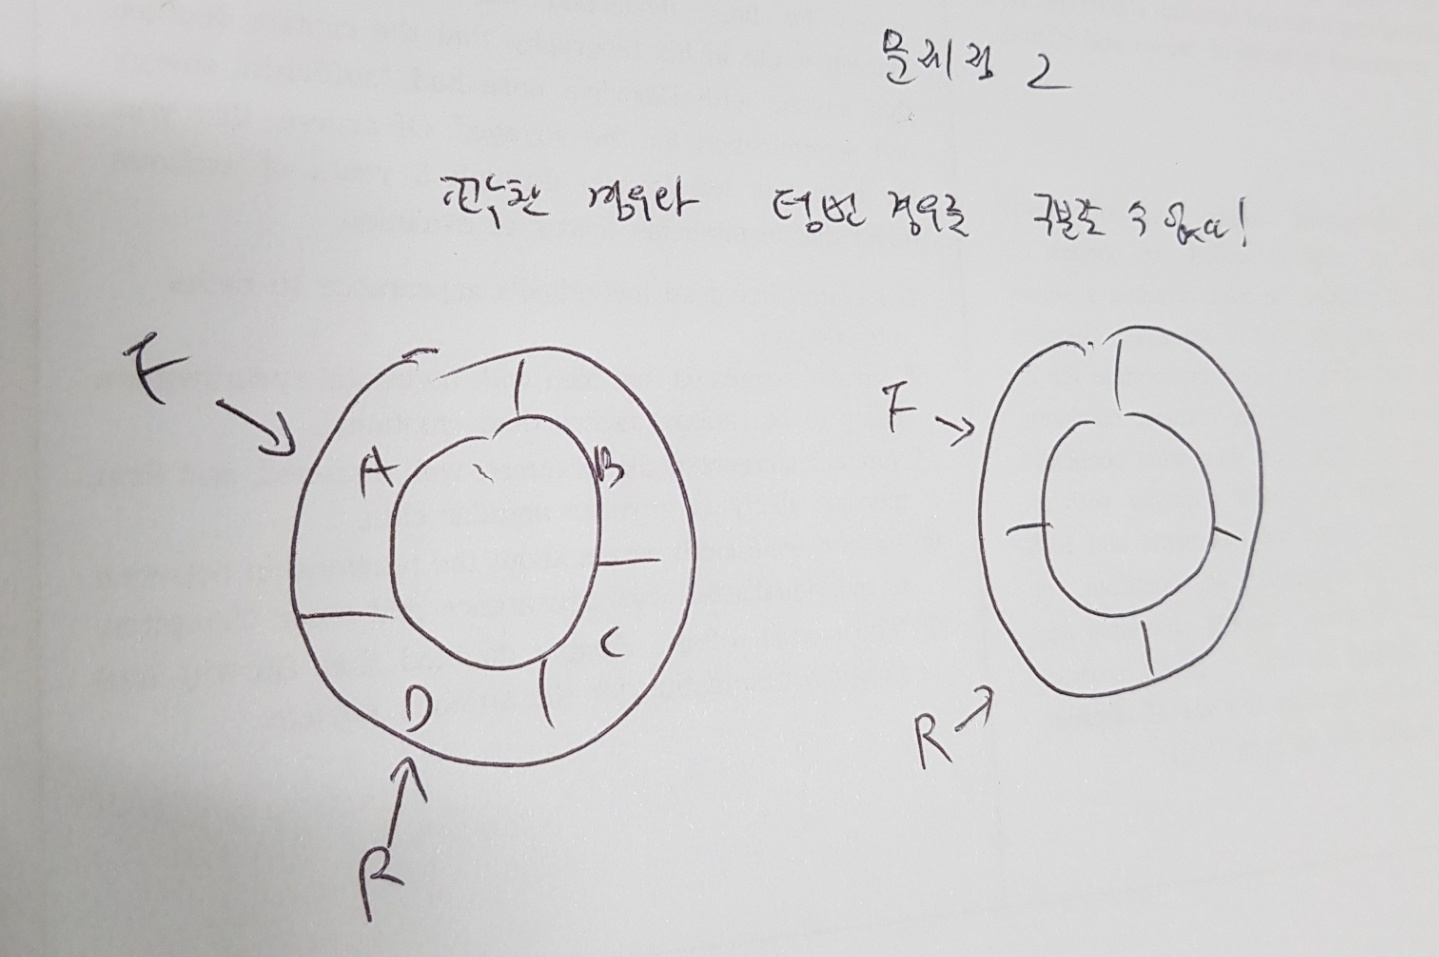 문제점 2
꽉찬 경우와 텅빈 경우를 구분할 수 없다!
F
F
A
B
C
D
R
R